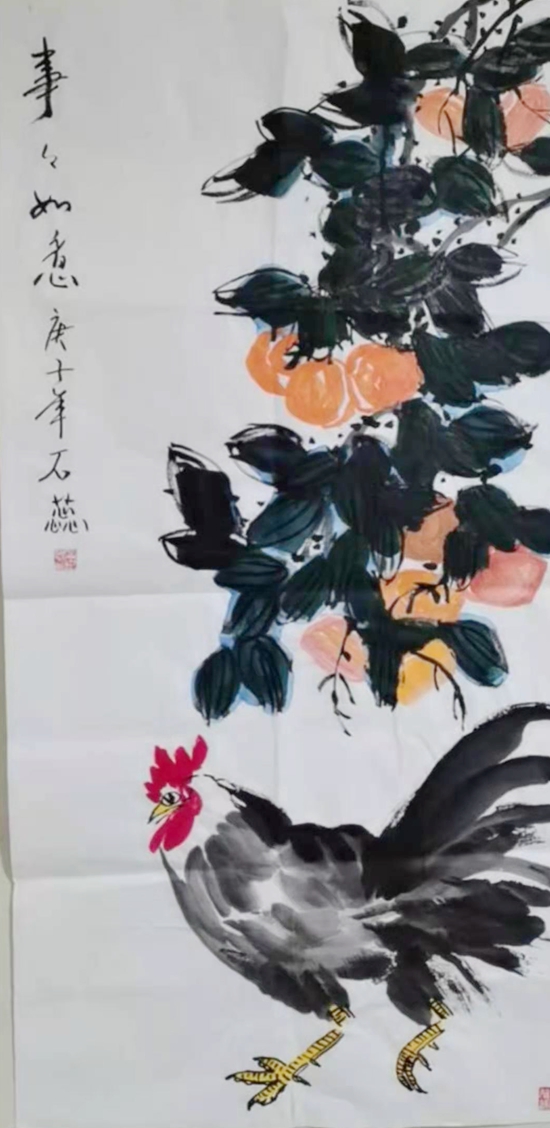 事々如意庚子年石蕊